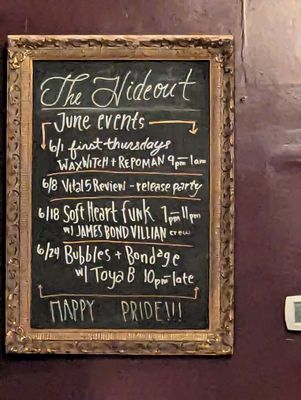 The Hideout
June events
6/1 first thursdays
WAXWITCH + REPOMAN 9pm-1am
6/8 Vital5Review - release party
6/18 Soft Heart funk 7pm-11pm
w/ JAMES BOND VILLIAN crew
6/24 Bubbles + Bondage
w/ Toya B 10pm-late
HAPPY PRIDE!!!